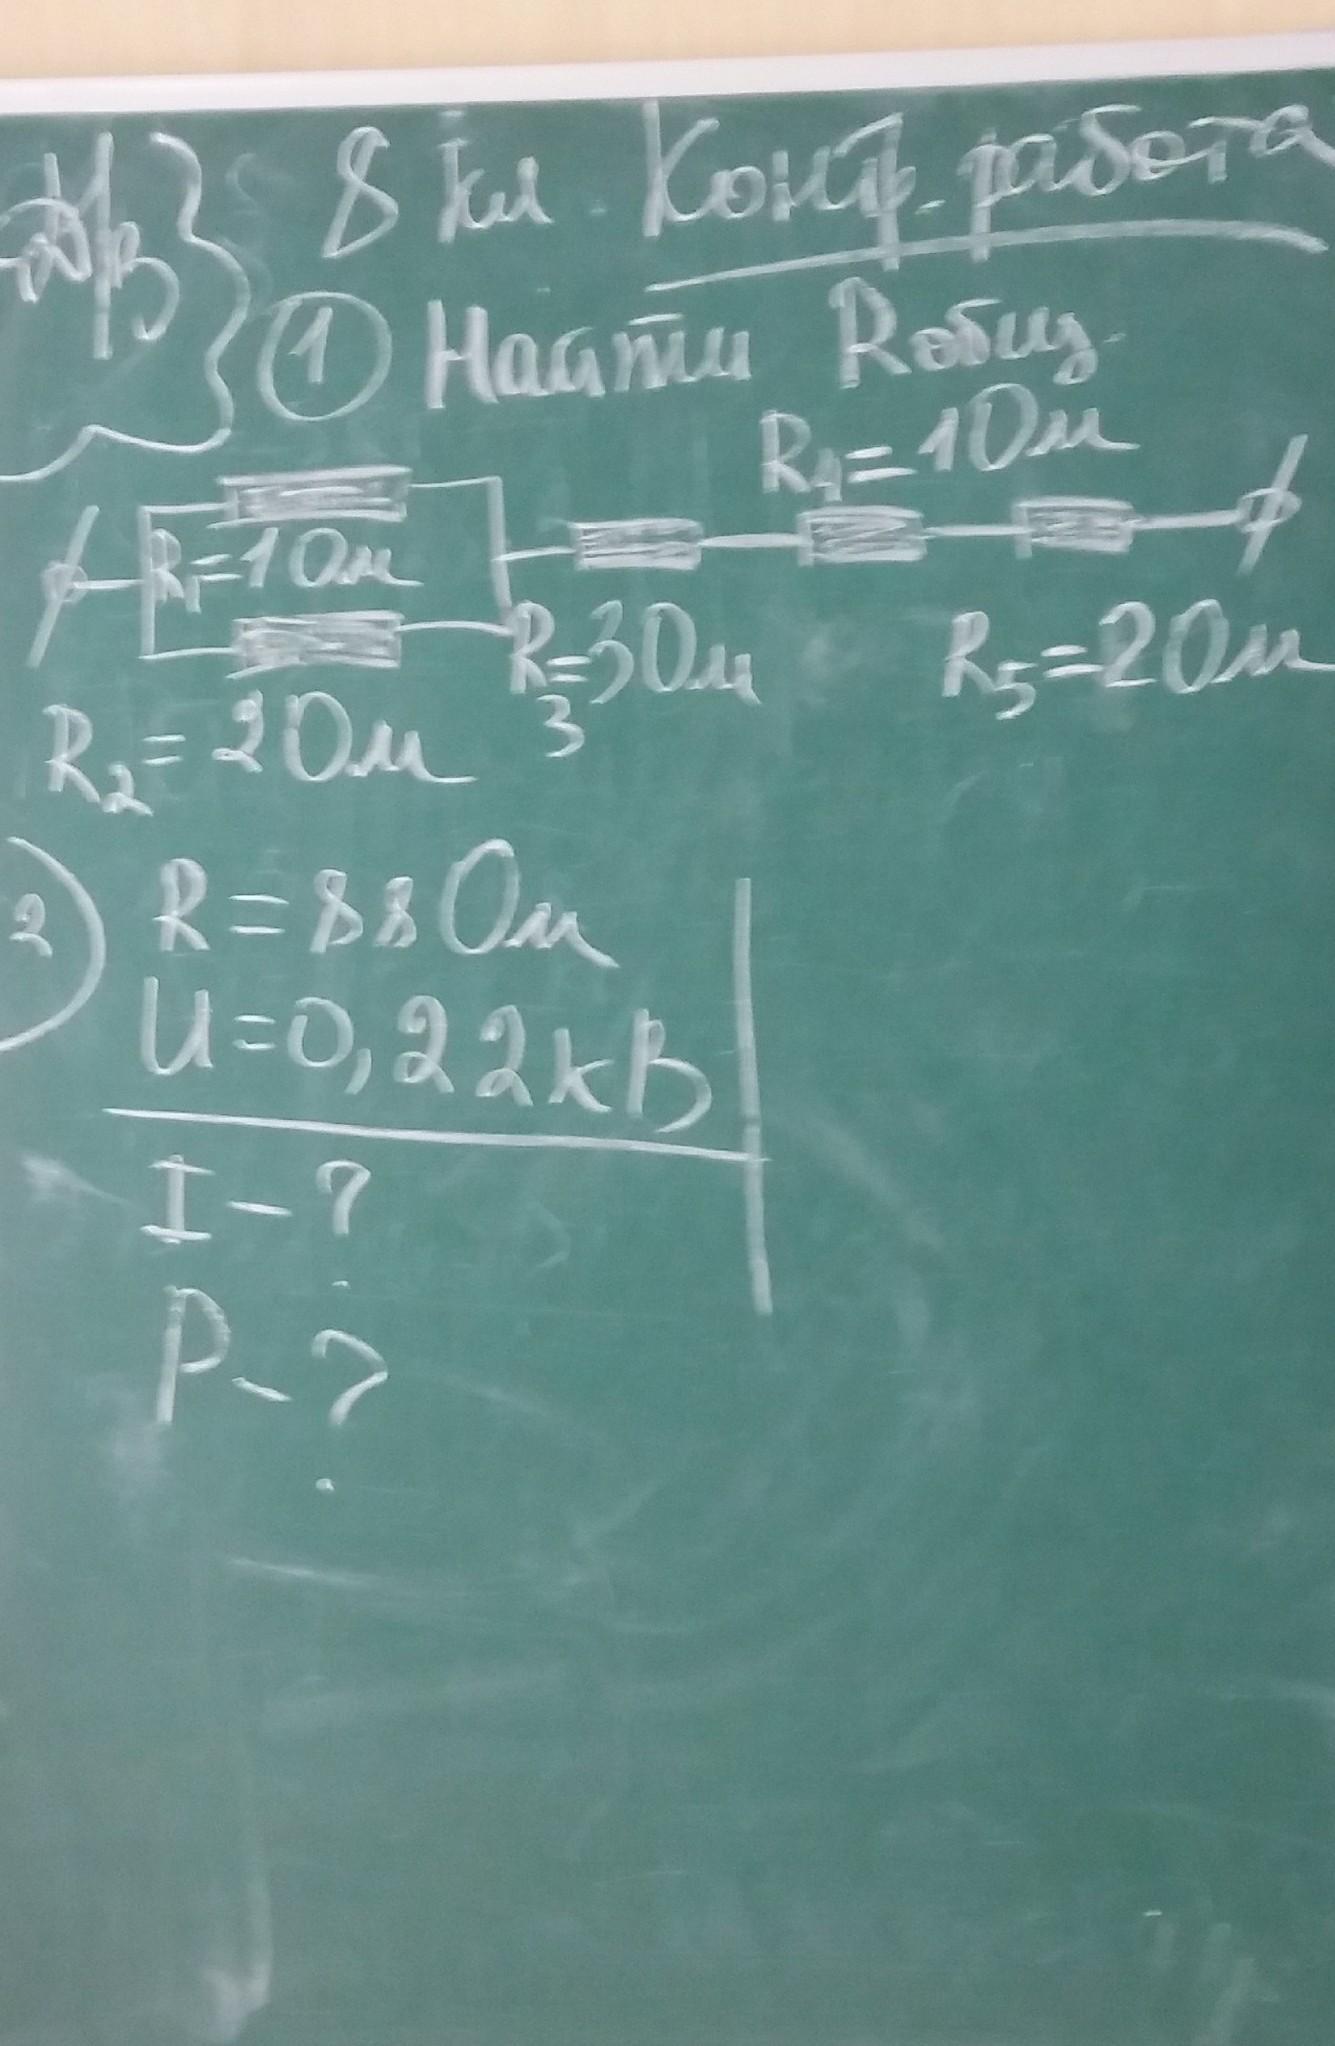 8 кл. Контр. работа
① Найти Rобщ.
R4=1Ом
R1=1Ом
R3=3Ом
R5=2Ом
R2=2Ом
2) R=88Ом
U=0,22кВ
I-?
P-?